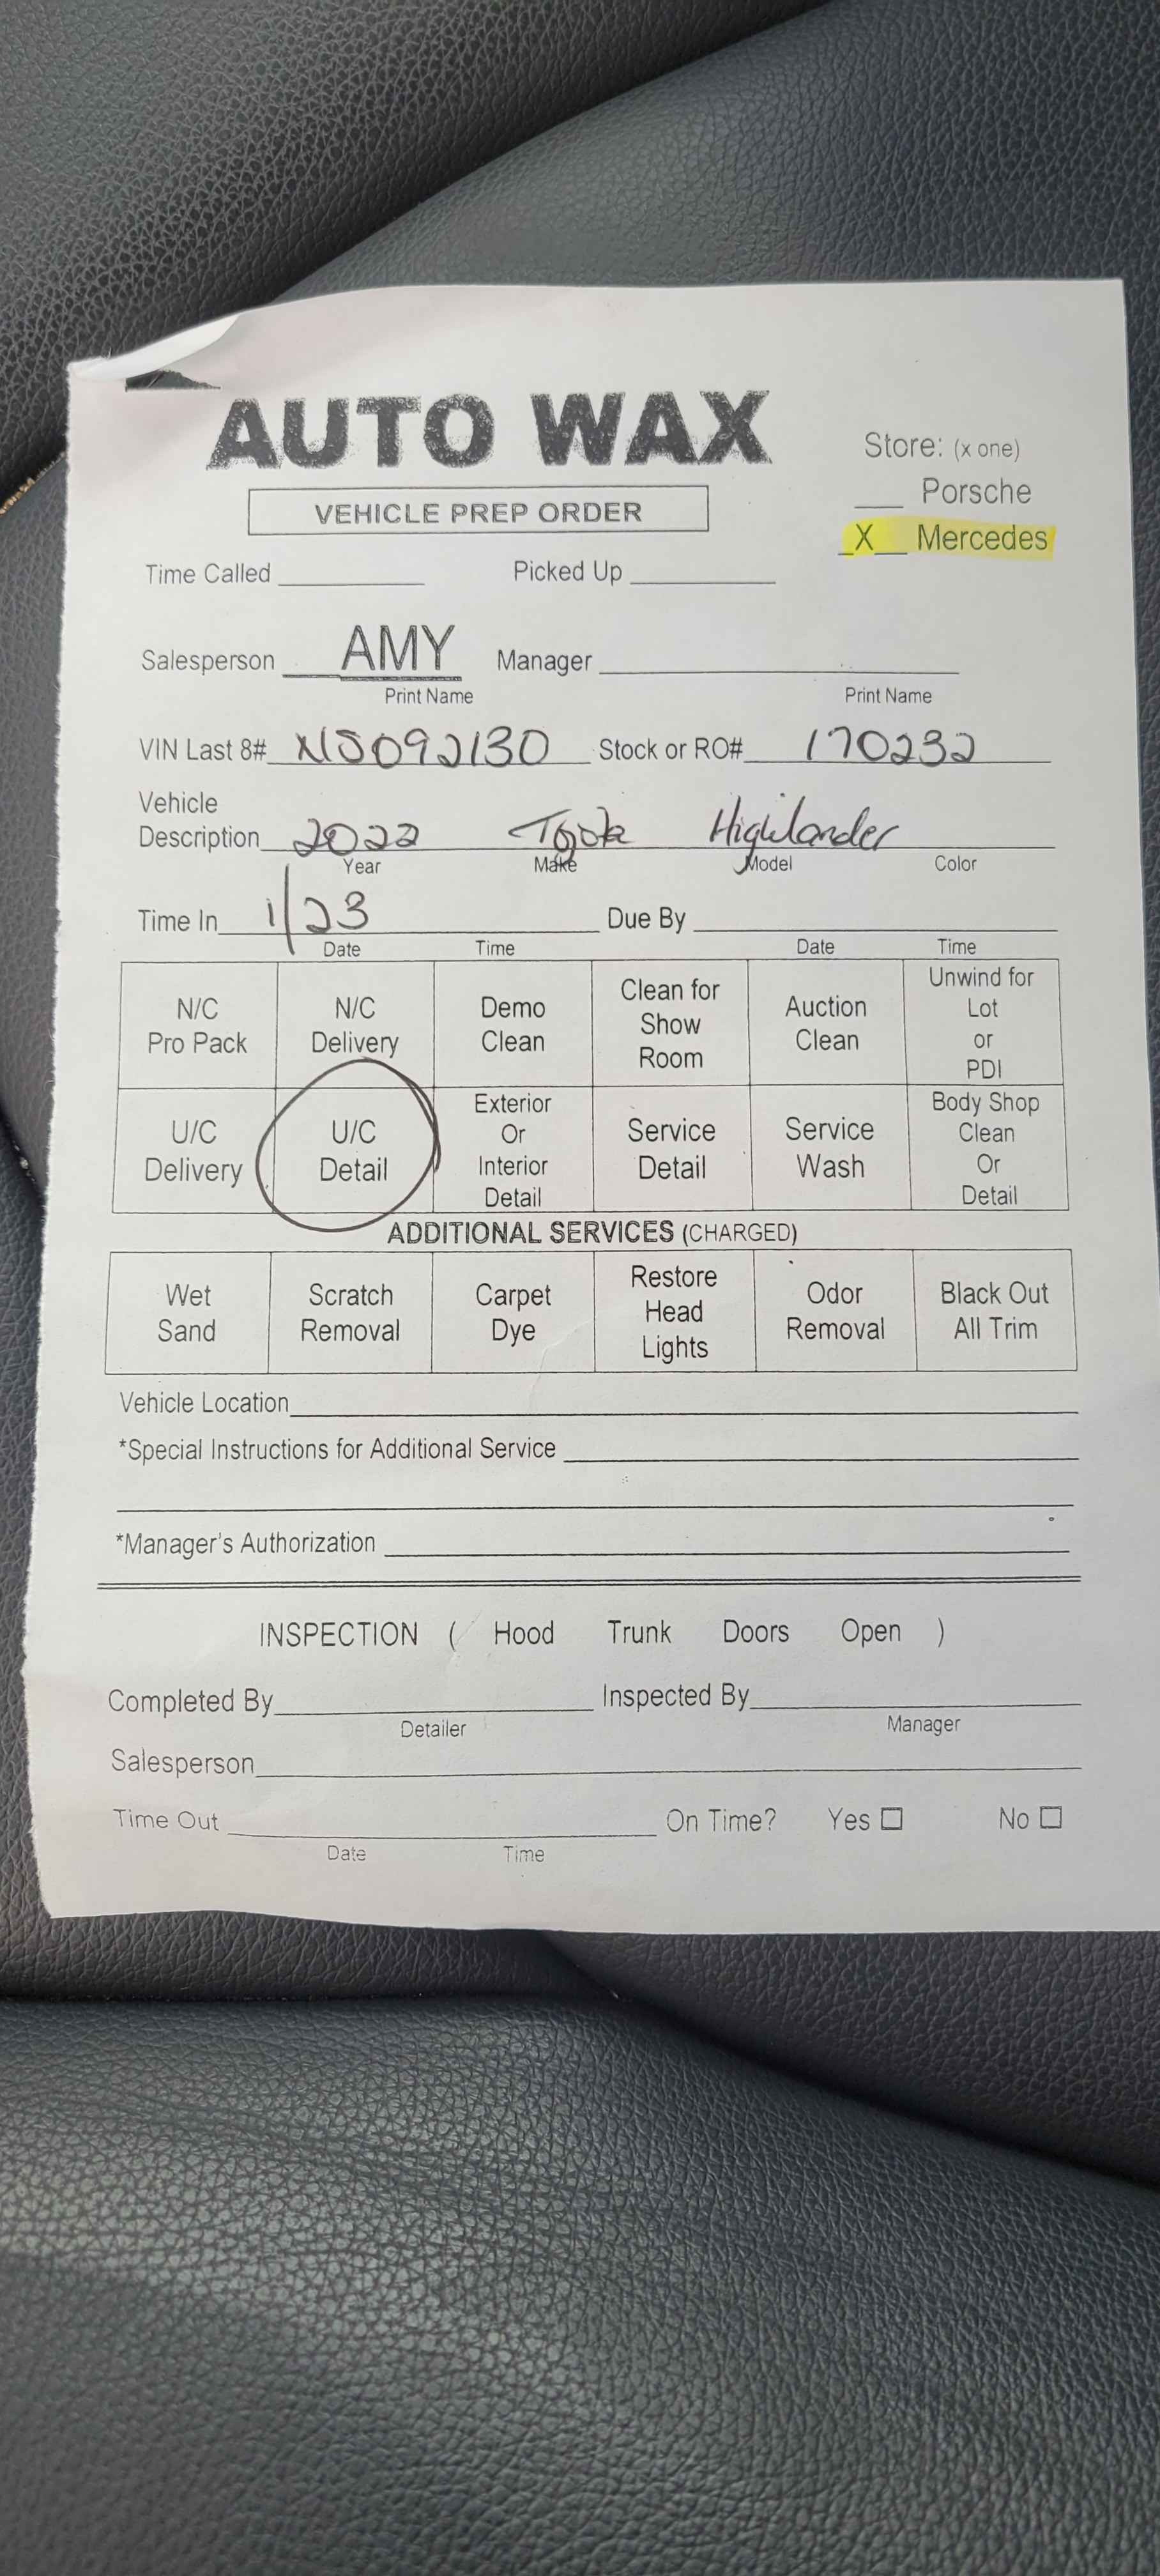 AUTO WAX
Store: (x one)
VEHICLE PREP ORDER
___ Porsche
_X_ Mercedes
Time Called ________ Picked Up ________
Salesperson AMY Manager ________
Print Name Print Name
VIN Last 8# NS092130 Stock or RO# 170232
Vehicle
Description 2022 Toyota Highlander
Year Make Model Color
Time In 1/23 Due By ________
Date Time Date Time
N/C Pro Pack N/C Delivery Demo Clean Clean for Show Room Auction Clean Unwind for Lot or PDI
U/C Delivery U/C Detail Exterior Or Interior Detail Service Detail Service Wash Body Shop Clean Or Detail
ADDITIONAL SERVICES (CHARGED)
Wet Sand Scratch Removal Carpet Dye Restore Head Lights Odor Removal Black Out All Trim
Vehicle Location ________
*Special Instructions for Additional Service ________
*Manager's Authorization ________
INSPECTION ( Hood Trunk Doors Open )
Completed By ________ Inspected By ________
Detailer Manager
Salesperson ________
Time Out ________ On Time? Yes ☐ No ☐
Date Time